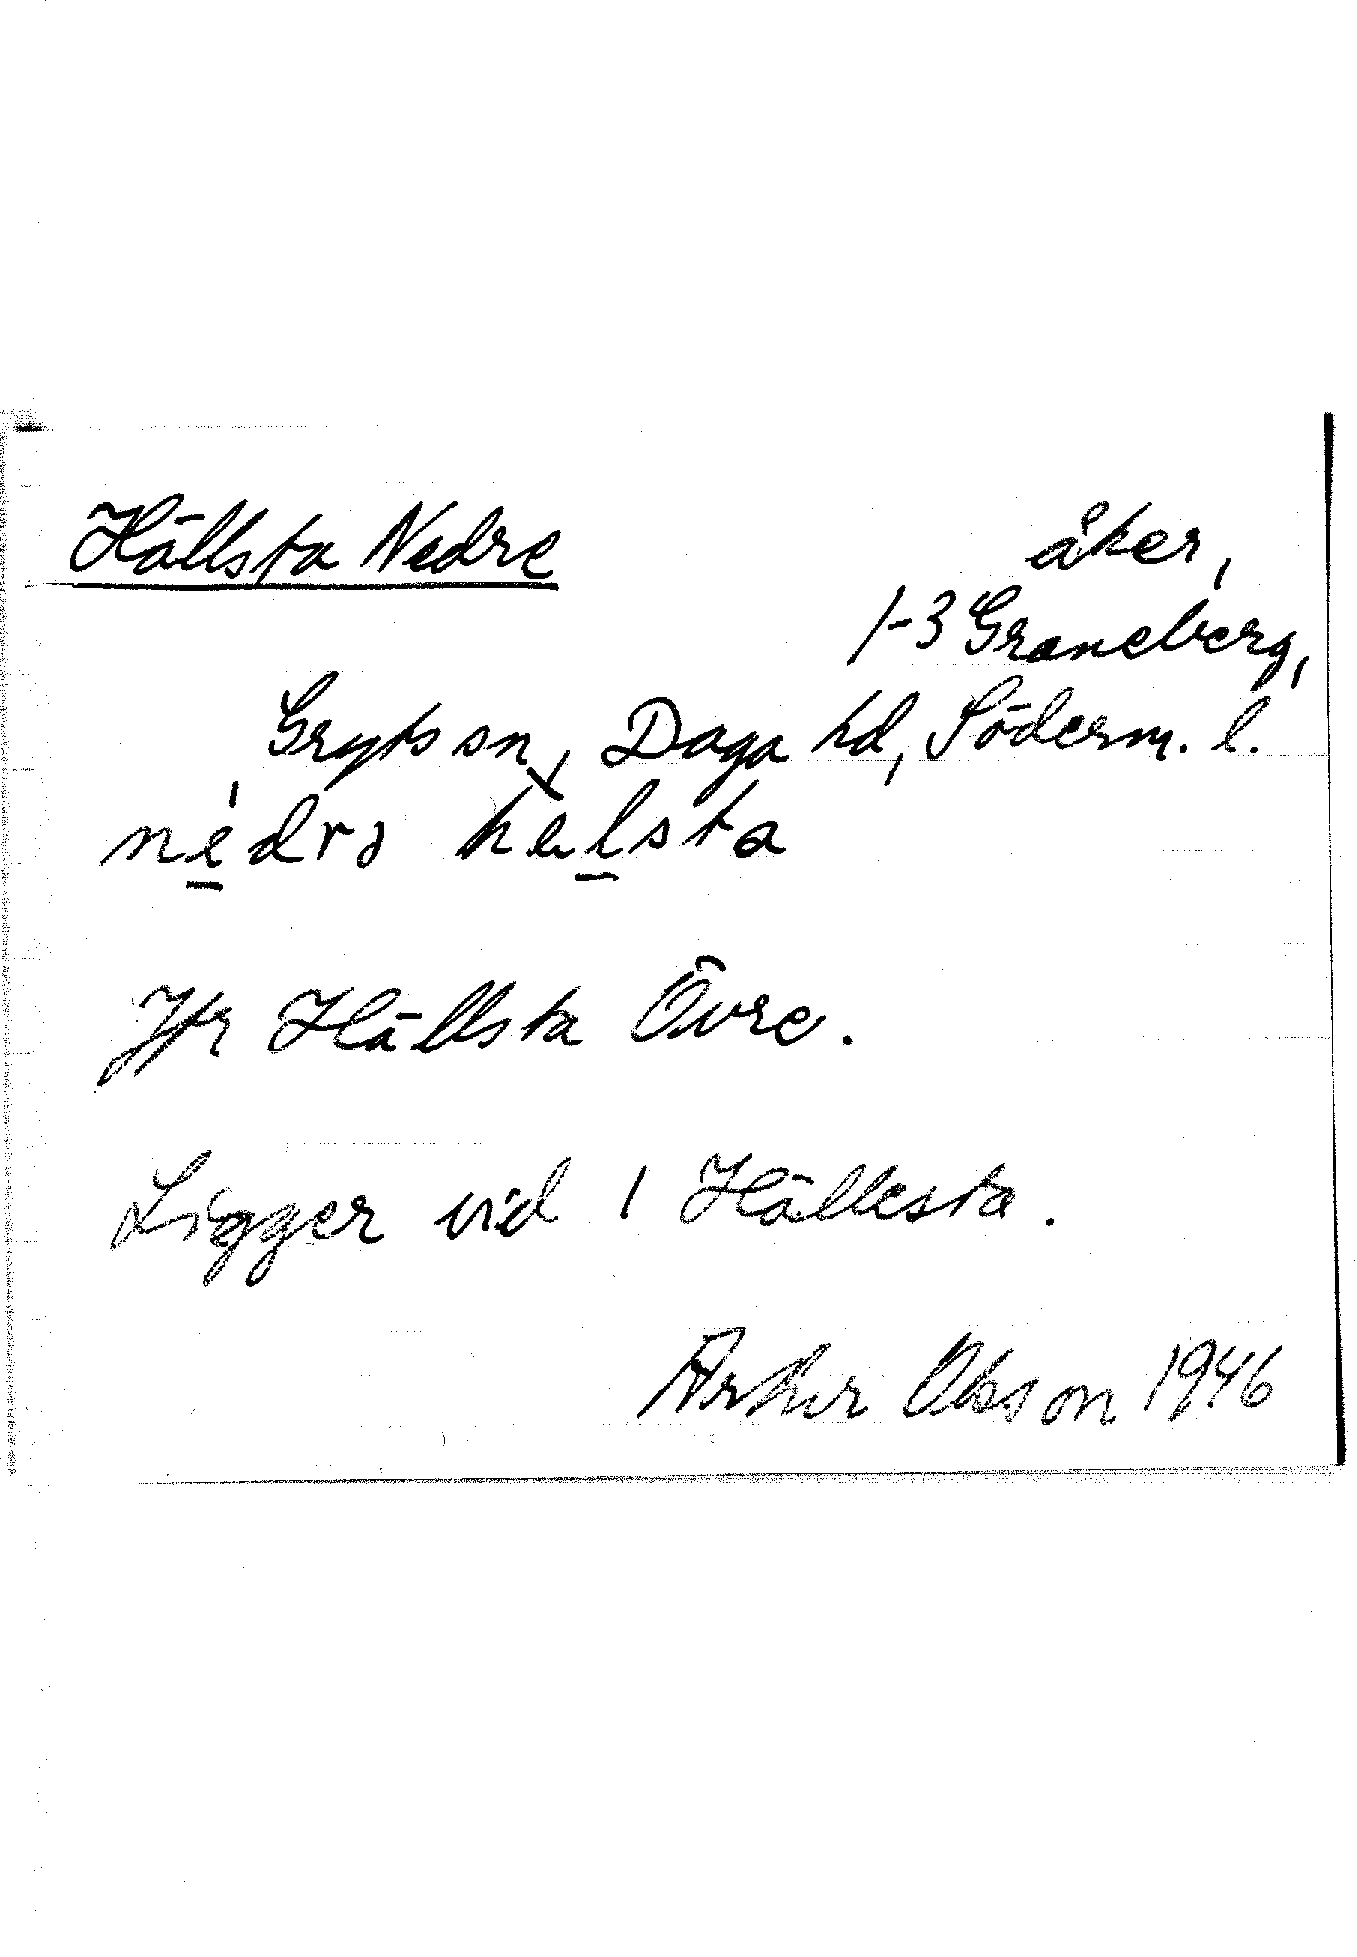 Hällsta Nedre
åker,
1-3 Graneberg,
Gryts sn, Daga hd, Söderm. l.
nedrə helsta
Jfr Hällsta Övre.
Ligger vid 1 Hällesta.
Arthur Olsson 1946